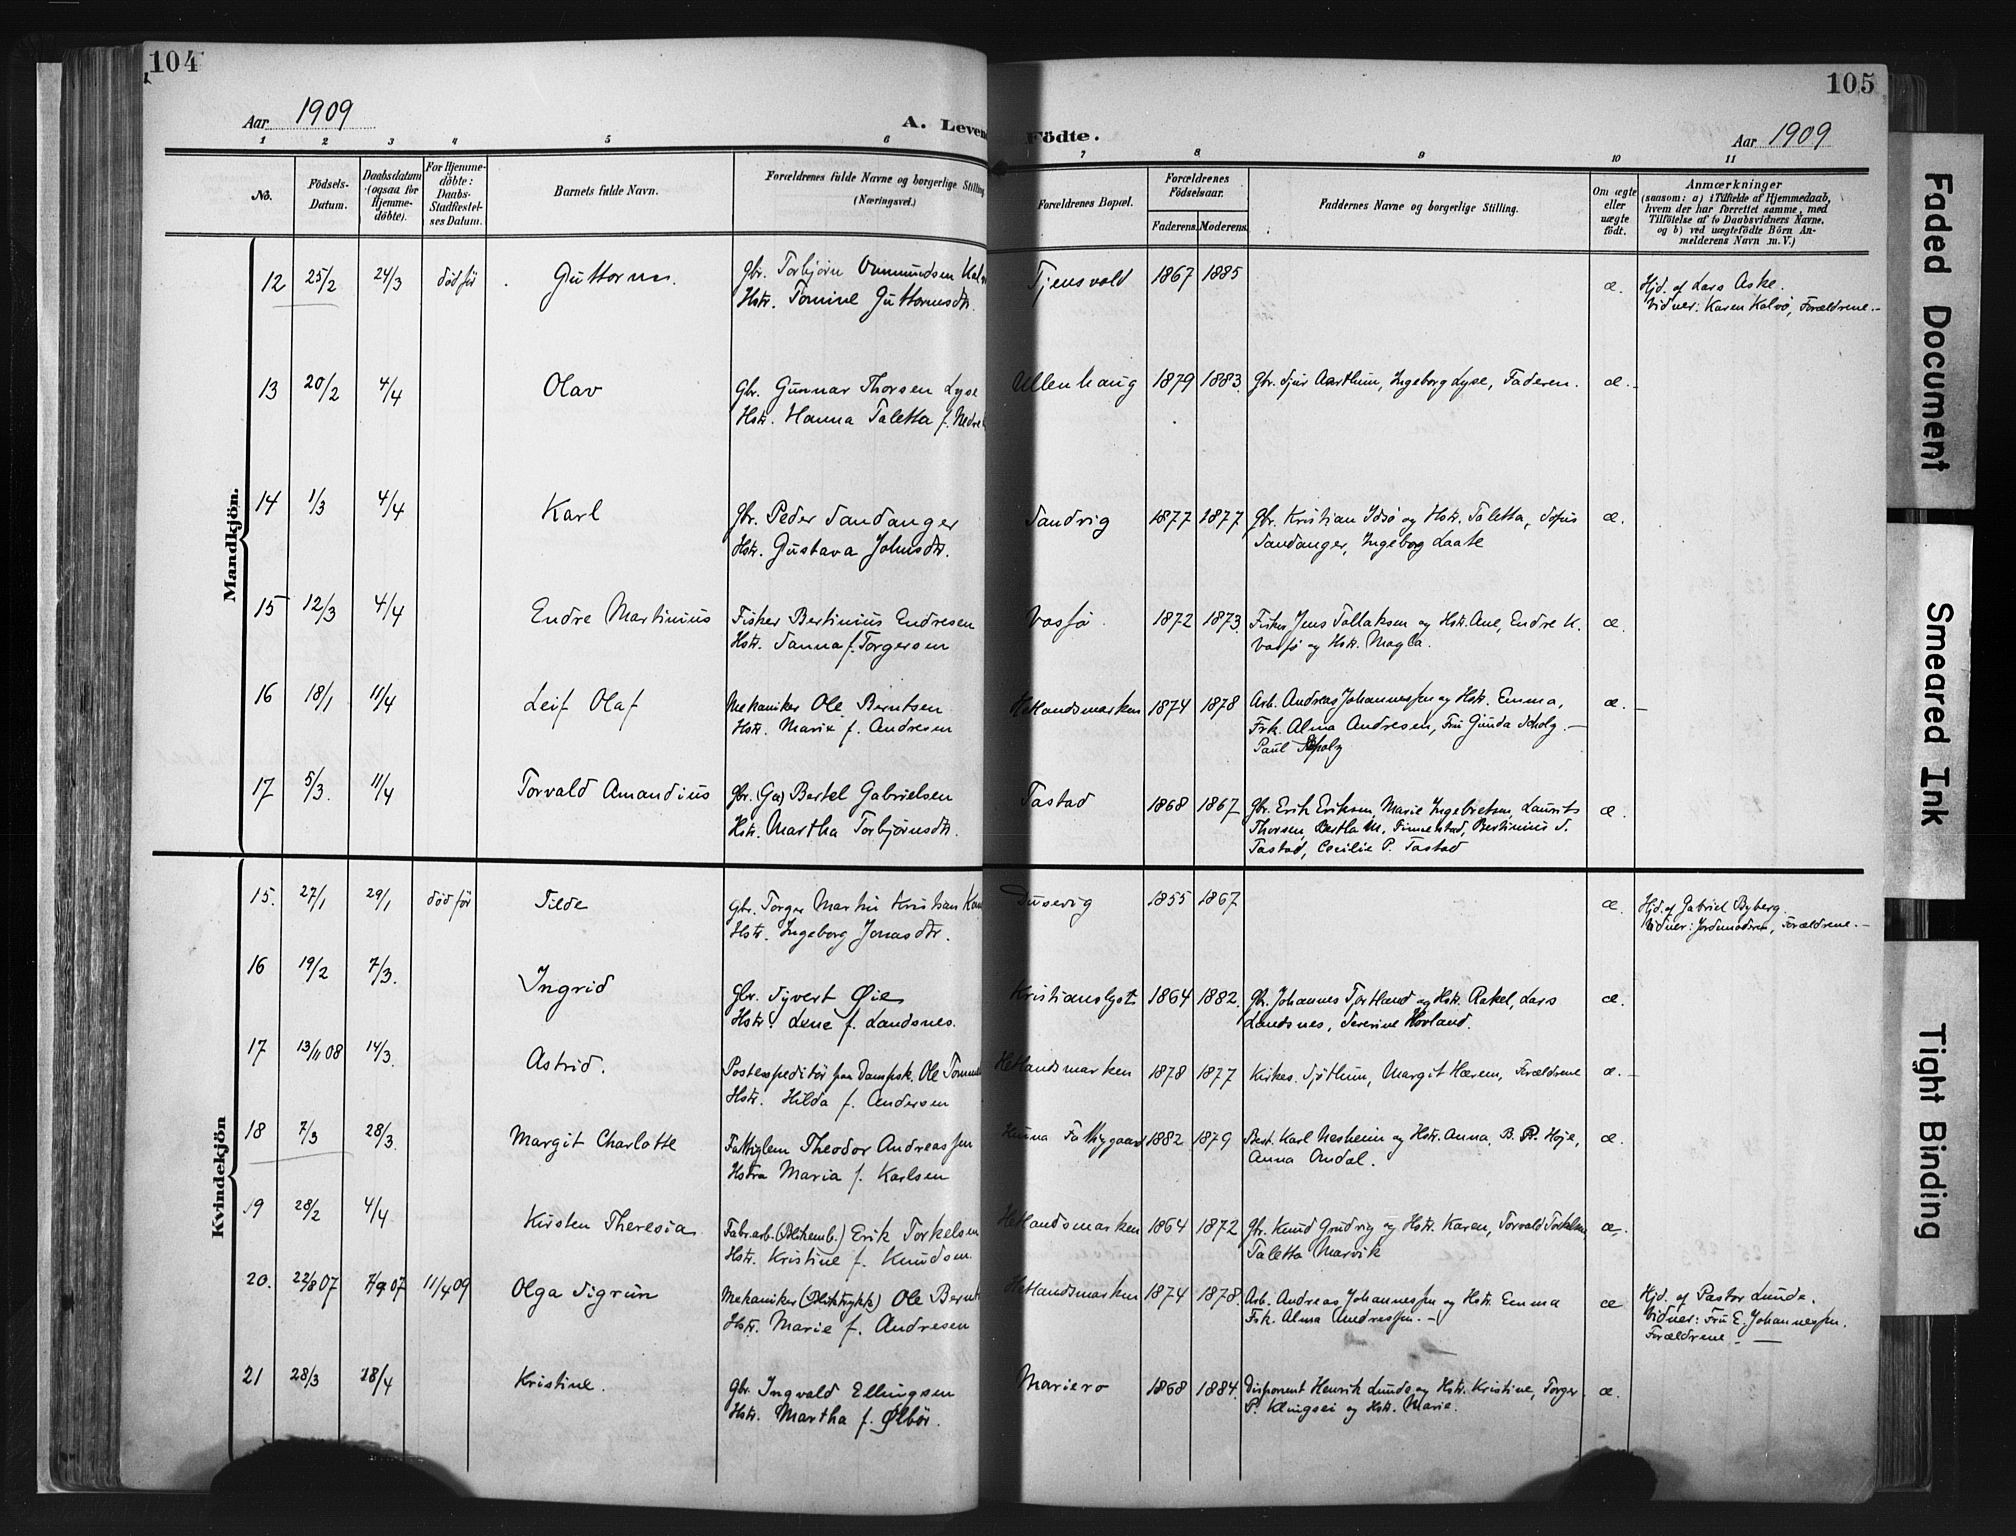 104
105
Aar 1909
A. Levende Födte.
Aar 1909
1 2 3 4 5 6 7 8 9 10 11
No.
Födsels-
Datum.
Daabsdatum
(ogsaa for
Hjemme-
döbte).
For Hjemme-
döbte:
Daabs-
Stadfæstel-
ses Datum.
Barnets fulde Navn.
Forældrenes fulde Navne og borgerlige Stilling
(Næringsvei.)
Forældrenes Bopæl.
Forældrenes
Födselsaar.
Faderens. Moderens.
Faddernes Navne og borgerlige Stilling.
Om ægte
eller
uægte
födt.
Anmærkninger
(saasom: a) i Tilfælde af Hjemmedaab,
hvem der har forrettet samme, med
Tilföielse af to Daabsvidners Navne,
og b) ved uægtefödte Börn An-
melderens Navn m. V.)
Mandkjön.
12 25/2 24/3 död för Guttorm. Gbr. Torbjörn Ommundsen Tjensvold 1867 1885 æ. Hjd. af Lars Aske.
Hstr. Tomine Guttormsdtr. Vidner: Karen Kalvø, Forældrene.-
13 20/2 4/4 Olav Gbr. Gunnar Thorsen Lyse Ullenhaug 1879 1883. Gbr. Sjur Aarthun, Ingeborg Lyse, Faderen. æ.-
Hstr. Hanna Taletta f. Nedre
14 1/3 4/4 Karl Gbr. Peder Sandanger Sandvig 1877 1877 Gbr. Kristian Idsö og Hstr. Taletta, Sofus æ.
Hstr. Gustava Johnsdtr. Sandanger, Ingeborg Laate
15 12/3 4/4 Endre Martinius Fisker Bertinius Endresen Vasfø. 1872 1873. Fisker Jens Tollaksen og Hstr. Ane, Endre K. æ.
Hstr. Sanna f. Torgersen Vasfø og Hstr. Magla.
16 18/1 11/4 Leif Olaf Mekaniker Ole Berntsen Hetlandsmarken 1874 1878 Arb. Andreas Johannessen og Hstr. Emma, æ.-
Hstr. Marie f. Andresen Frk. Alma Andresen, Fru Gunda Scholz.-
Paul Scholz
17 5/3. 11/4 Torvald Amandius Gbr. (Ga) Bertel Gabrielsen Tastad 1868 1867 Gbr. Erik Eriksen, Marie Ingebretsen, Laurits æ
Hstr. Martha Torbjörnsdtr. Thorsen, Bertha M. Finnestad, Bertinius S.
Tastad, Cecilie P. Tastad
Kvindekjön
15. 27/1 29/1 död för Tilde Gbr. Torger Martin Kristian Dusevig 1855 1867 æ. Hjd. af Gabriel Byberg
Hstr. Ingeborg Jonasdtr. Vidner: Jordemoderen, Forældrene.-
16 19/2 7/3. Ingrid Gbr. Syvert Øie Kristianslyst 1864 1882. Gbr. Johannes Tjortland og Hstr. Rakel, Lars æ.
Hstr. Lene f. Landsnes. Landsnes, Severine Hovland.
17 13/11 08 14/3. Astrid. Postexpeditör paa Dampsk. Ole Tomm Hetlandsmarken 1878 1877 Kirkes. Sjöthun, Margit Hærem, Forældrene æ.-
Hstr. Hilda f. Andersen
18 7/3 28/3. Margit Charlotte Fattiglem Theodor Andreassen Fattiggaard 1882 1879 Best. Karl Nesheim og Hstr. Anna, B. R. Høie, æ.
Hstra Maria f. Karlsen Anna Omdal.
19 28/2 4/4 Kirsten Theresia Fabr.arb. (Blikemb.) Erik Torkelsen Hetlandsmarken 1864 1872 Gbr. Knud Gondrig og Hstr. Karen, Torvald Torkelsen æ.
Hstr. Kristine f. Knudsen. Taletta Marvik
20. 22/8 07 7/9 07 11/4 09 Olga Sigrun Mekaniker (Bliktrykk) Ole Bernt Hetlandsmarken 1874 1878. Arb. Andreas Johannessen og Hstr. Emma æ Hjd. af Pastor Lunde.
Hstr. Marie f. Andresen Frk. Alma Andressen.- Vidner: Fru E. Johannessen.
Forældrene.-
21 28/3 18/4 Kristine. Gbr. Ingvald Ellingsen Mariero 1868 1884. Disponent Henrik Lunde og Hstr. Kristine, Torger æ.
Hstr. Martha f. Ølbör. P. Klingsei og Hstr. Marie.
Faded Document
Smeared Ink
Tight Binding